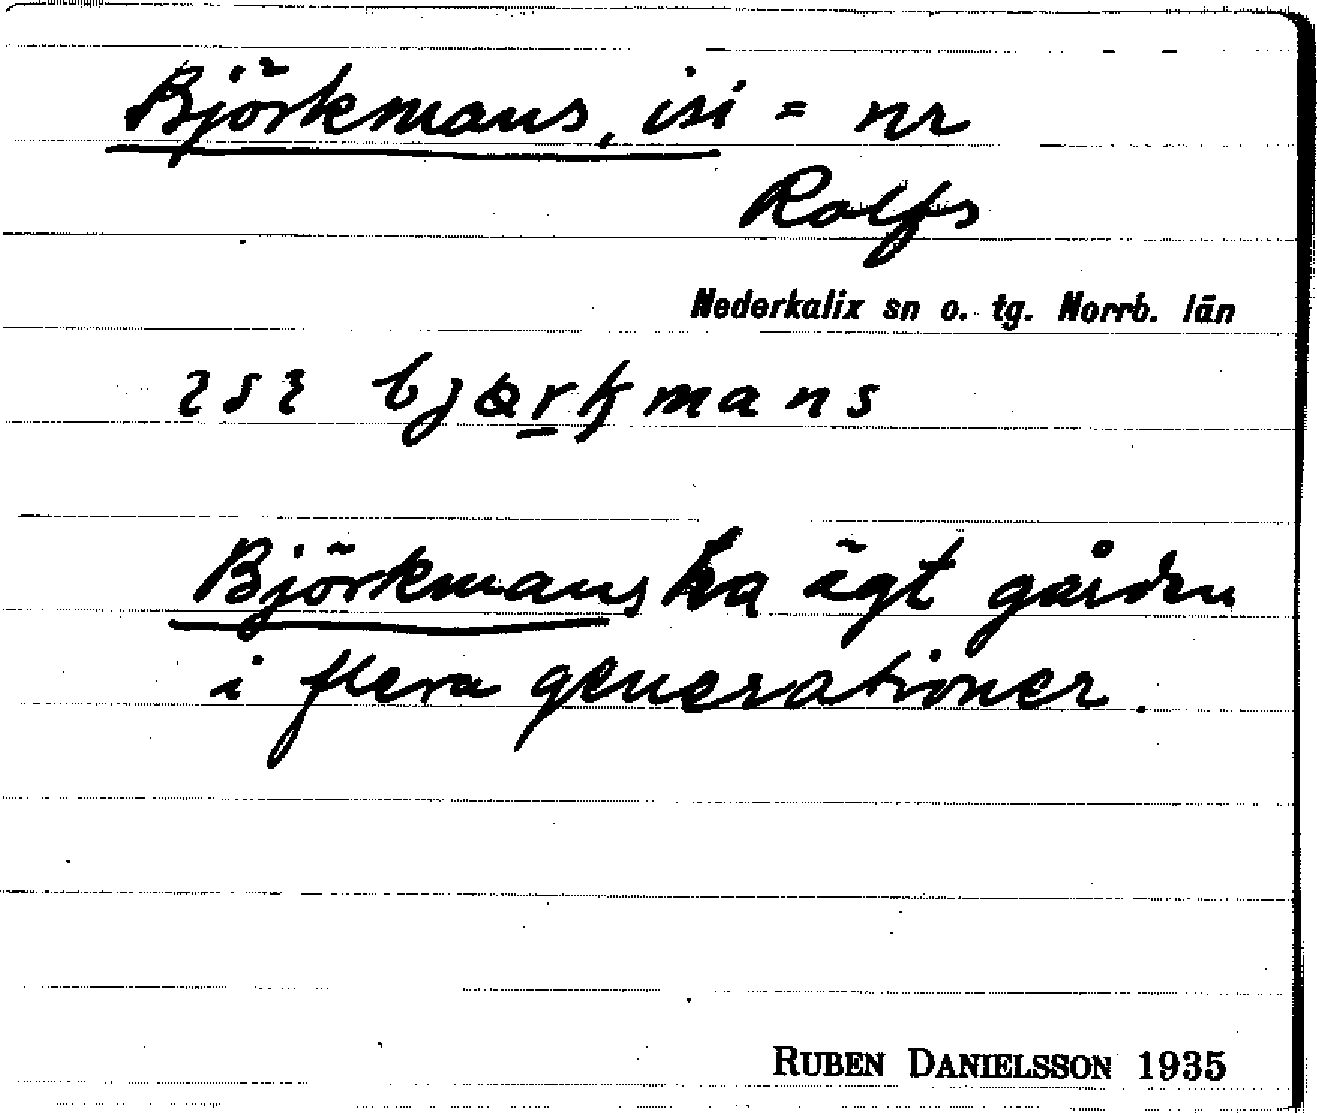 Björkmans, isi = nr
Rolfs
Nederkalix sn o. tg. Norrb. län
bjœrkmans
Björkmans ha ägt gården
i flera generationer.
RUBEN DANIELSSON 1935